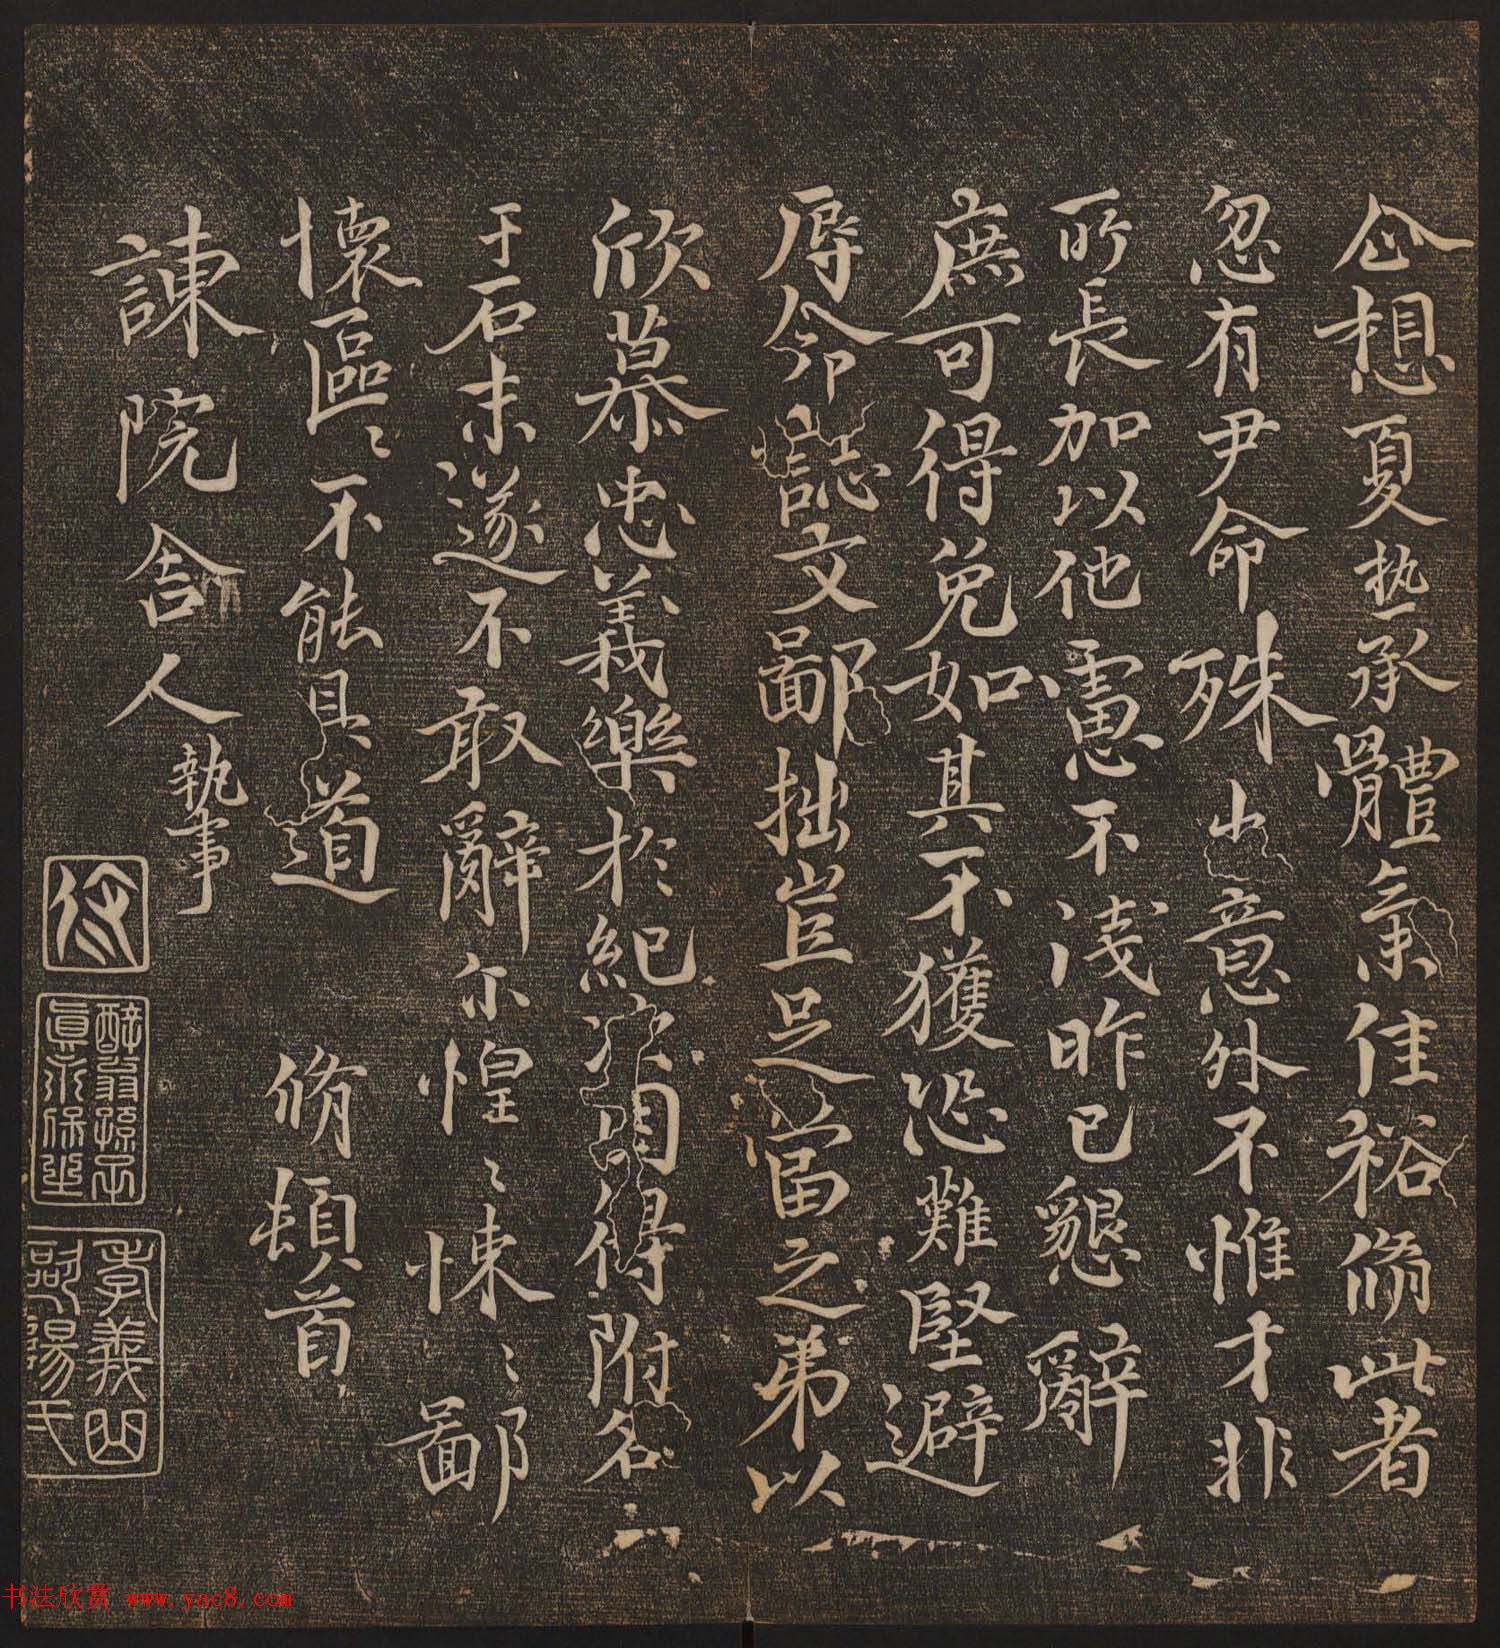 企想夏热承體氣佳裕脩此者
忽有尹命殊出意外不惟才非
所長加以他慮不淺昨已懇辭
庶可得免如其不獲恐難堅避
辱命誌文鄙拙豈足當之弟以
欣慕忠義樂於紀次因得附名
于石末遂不敢辭尔惶〻悚〻鄙
懷區〻不能具道　脩頓首
諫院舍人執事
醉翁孫子
真永保坐
李義山
书法欣赏 www.yac8.com